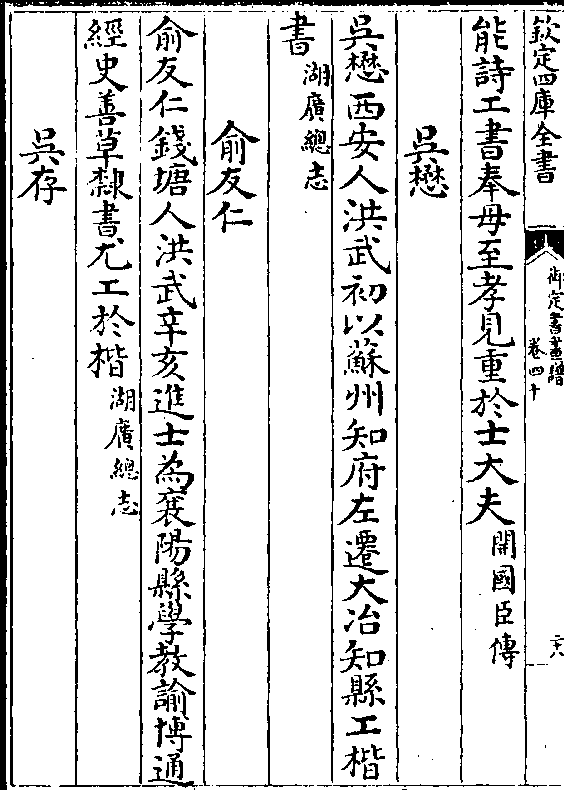 欽定四庫全書
御定書畫譜
卷四十
二十八
能詩工書奉母至孝見重於士大夫開國臣傳
吳懋
吳懋西安人洪武初以蘇州知府左遷大冶知縣工楷
書湖廣總志
俞友仁
俞友仁錢塘人洪武辛亥進士為襄陽縣學教諭博通
經史善草隸書尤工於楷湖廣總志
吳存